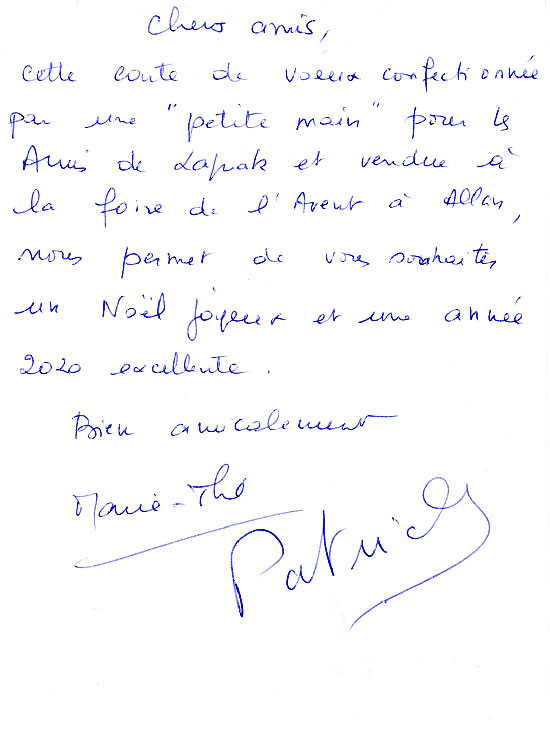 Chers amis,
cette carte de voeux confectionnée
par une "petite main" pour les
Amis de Lapak et vendue à
la foire de l'Avent à Allan,
nous permet de vous souhaiter
un Noël joyeux et une année
2020 excellente.
Bien amicalement
Marie-Thé
Patrick